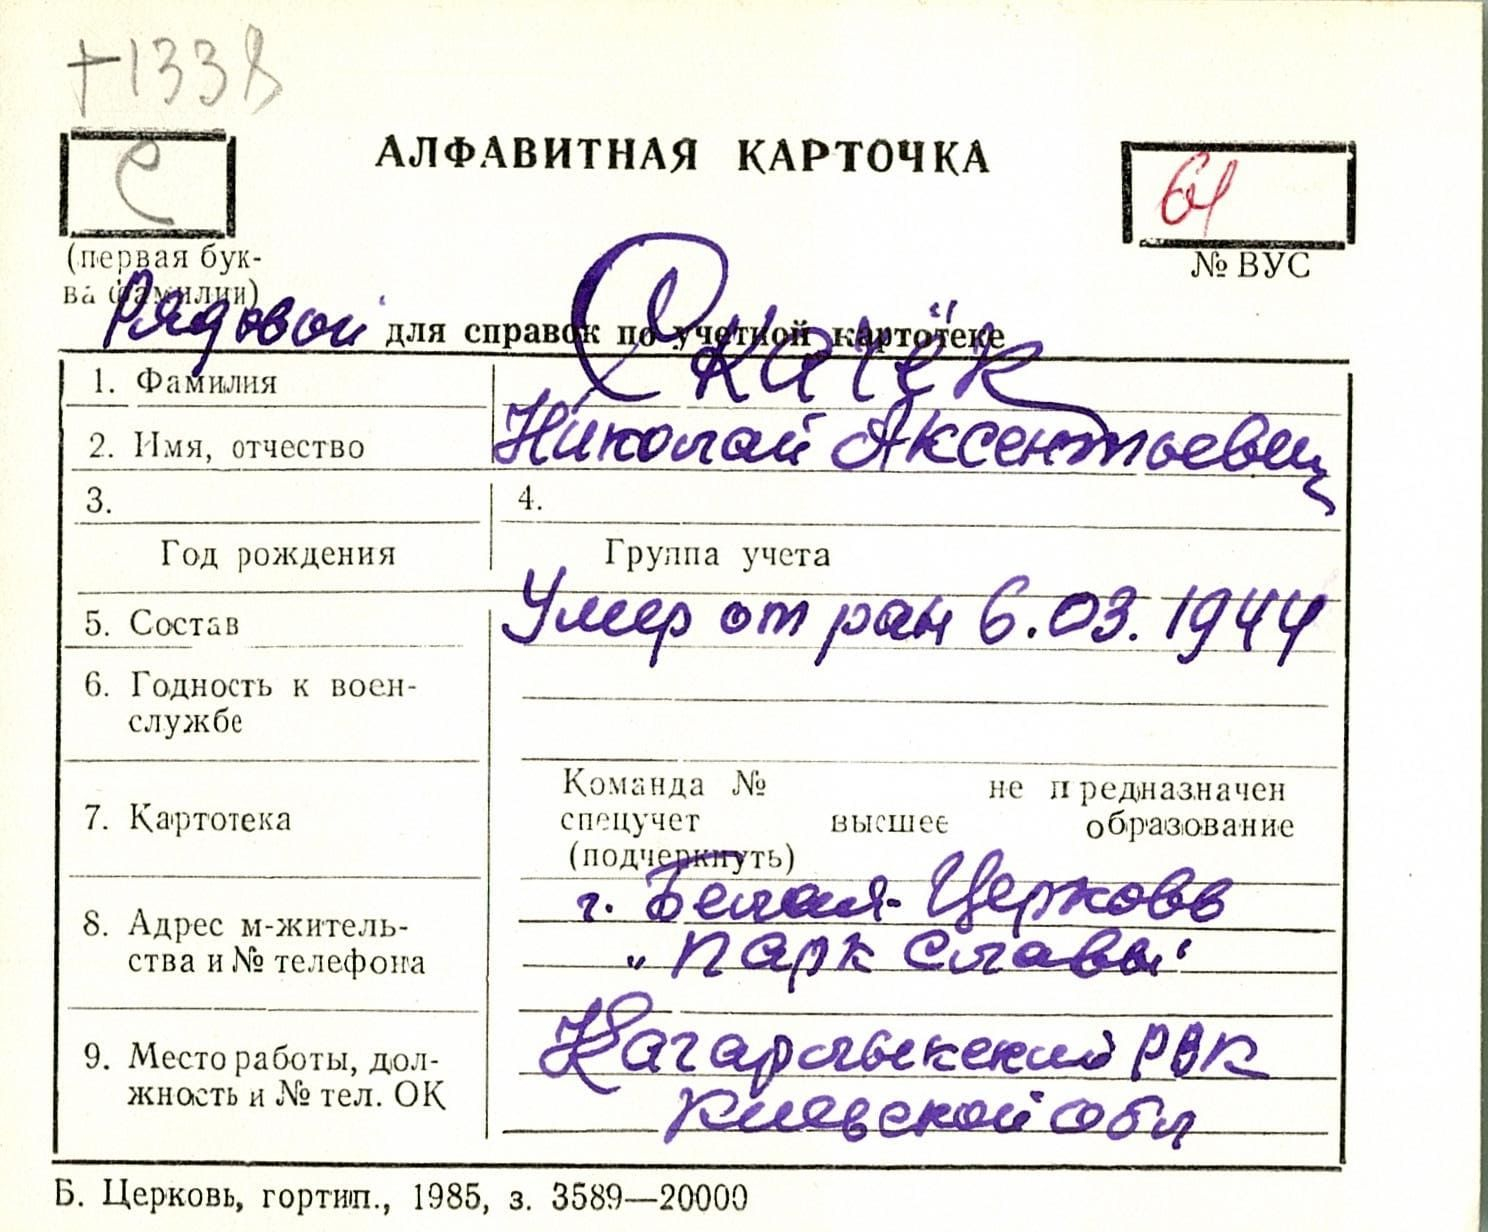 +1338
С
АЛФАВИТНАЯ КАРТОЧКА
61
(первая бук-
ва фамилии)
№ ВУС
Рядовой для справок по учетной картотеке
1. Фамилия Скачёк
2. Имя, отчество Николай Аксентьевич
3. 4.
Год рождения Группа учета
5. Состав Умер от ран 6.03.1944
6. Годность к воен-
службе
Команда № не предназначен
7. Картотека спецучет высшее образование
(подчеркнуть)
г. Белая-Церковь
8. Адрес м-житель-
ства и № телефона „Парк Славы"
9. Место работы, дол- Кагарлыкский РВК
жность и № тел. ОК Киевской обл
Б. Церковь, гортип., 1985, з. 3589—20000